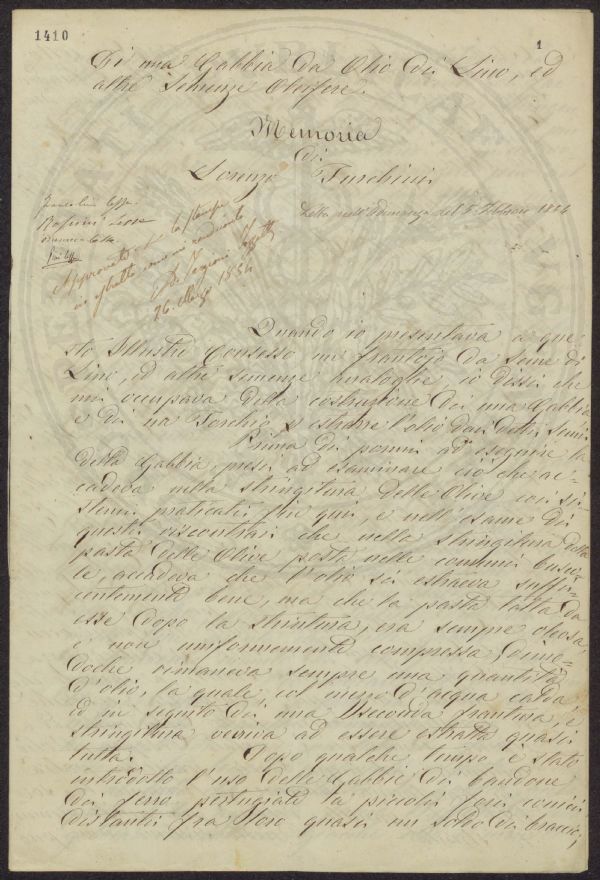 1410
1
Di una Gabbia da Olio di Lino, ed
altre Semenze Oleifere.
Memoria
di
Lorenzo Turchini
Letta nell'Adunanza del 5 Febbraio 18
Approvato la stampa
in estratto
26 Marzo 1834
Quando io presentava a que-
sto Illustre Consesso un frantojo da Seme di
Lino, ed altre semenze analoghe, io dissi che
mi occupava della costruzione di una Gabbia
e di un Torchio p estrarre l'olio dai detti semi.
Prima di pormi ad eseguire la
detta Gabbia, presi ad esaminare ciò che ac-
cadeva nella stringitura delle Olive coi si-
stemi praticati fin qui, e nell'esame di
questi riscontrai che nella stringitura della
pasta delle Olive posta nelle comuni busco-
le, accadeva che l'olio si estraeva suffi-
cientemente bene, ma che la pasta tolta da
esse dopo la strettura, era sempre oleosa,
e non uniformemente compressa, dimo-
doche rimaneva sempre una quantità
d'olio, la quale, col mezzo d'acqua calda
ed in seguito di una seconda frantura, e
stringitura veniva ad essere estratta quasi
tutta. Dopo qualche tempo è stato
introdotto l'uso delle Gabbie di bandone
di ferro pertugiate da piccoli fori conici
distanti fra loro quasi un soldo di braccio,